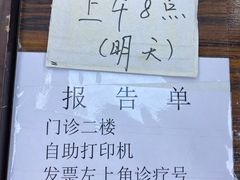 上午8点
(明天)
报告单
门诊二楼
自助打印机
发票左上角诊疗号